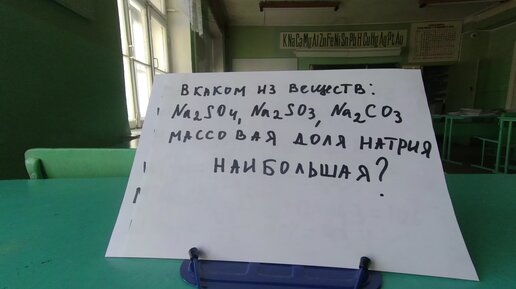 K Na Ca Mg Al Zn Fe Ni Sn Pb H Cu Hg Ag Pt Au
В КАКОМ ИЗ ВЕЩЕСТВ:
Na2SO4, Na2SO3, Na2CO3
МАССОВАЯ ДОЛЯ НАТРИЯ
НАИБОЛЬШАЯ?